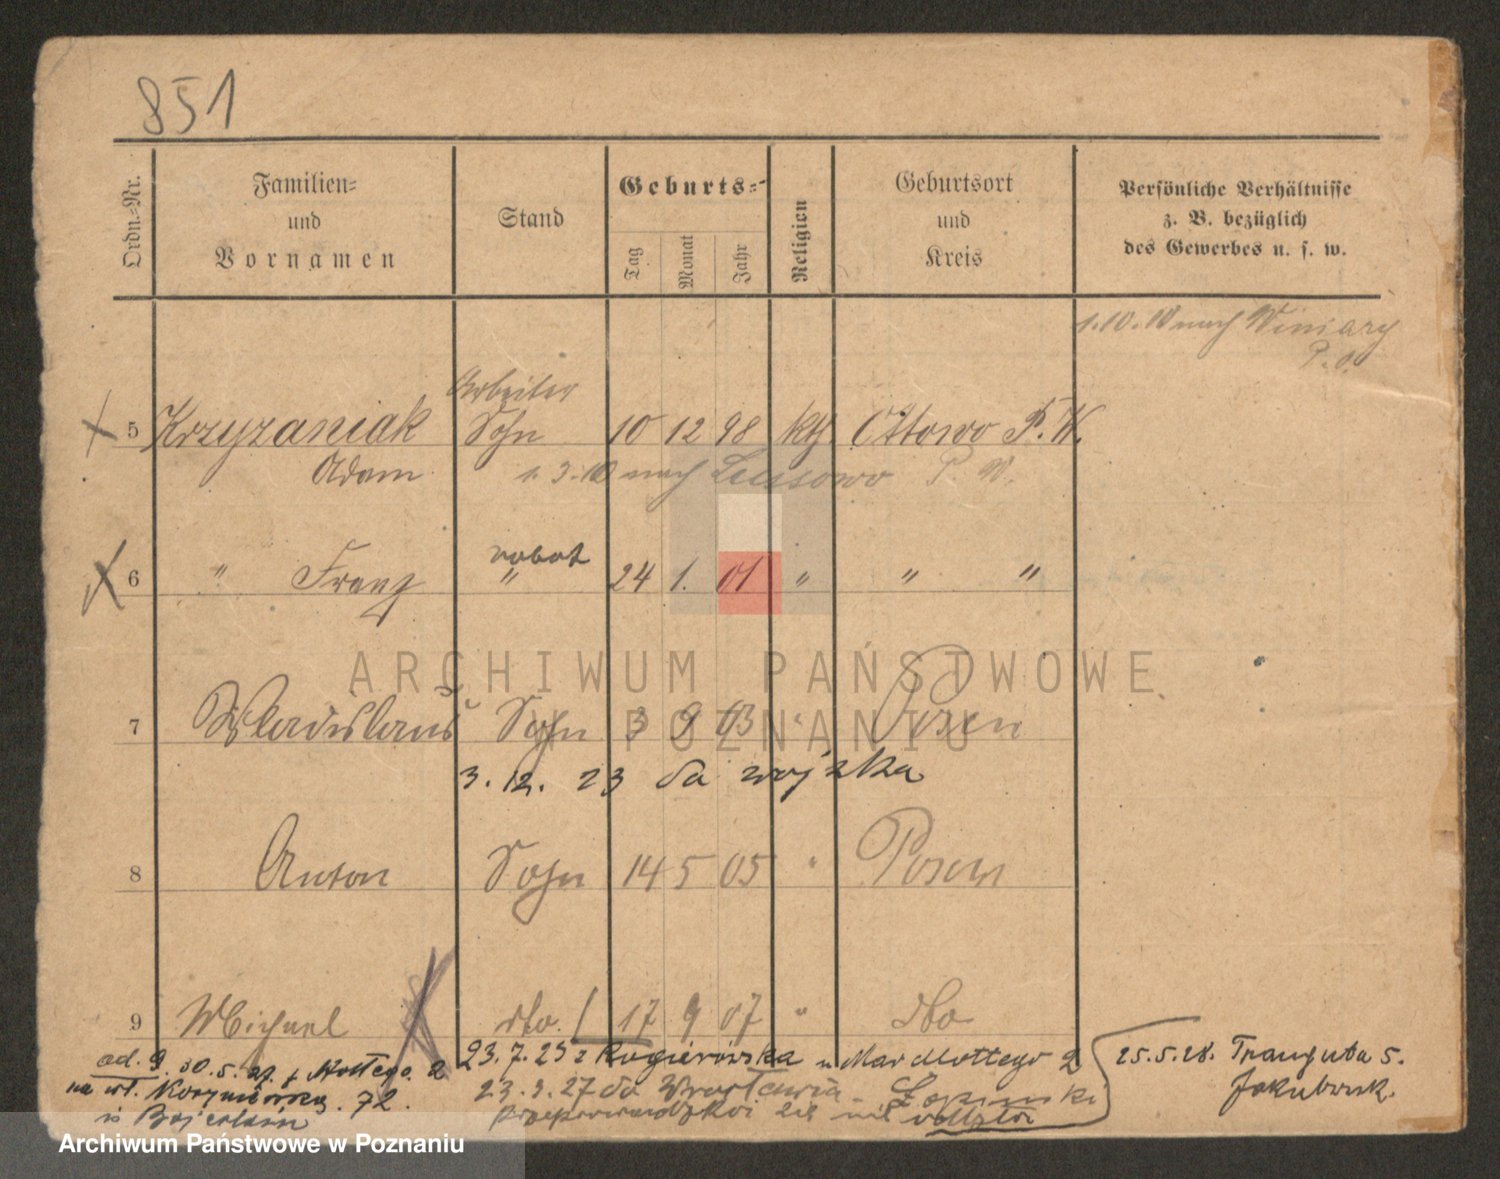 851
Ordn.-Nr.
Familien-
und
Vornamen
Stand
Geburts-
Tag
Monat
Jahr
Religion
Geburtsort
und
Kreis
Persönliche Verhältnisse
z. B. bezüglich
des Gewerbes u. s. w.
1.10.10 nach Winiary
P. O.
Arbeiter
5 Krzyzaniak Sohn 10 12 98 kth. Ottowo P. W.
Adam 1. 3. 10 nach Lussowo P. W.
robot
6 " Franz " 24 1. 01 " " "
ARCHIWUM PAŃSTWOWE
W POZNANIU
7 Wladislaus Sohn 3 9 03 " Posen
3. 12. 23 do wojska
8 Anton Sohn 14 5 05 " Posen
9 Michael dto. 17 9 07 " dto
ad. 9. 30. 5. 27. z Mottego 2
na ul. 72.
23. 7. 25 z Rogierówka u Mar Mottego 2
23. 3. 27 do
25. 5. 28. Traugutta 5.
Jakubowsk.
Archiwum Państwowe w Poznaniu